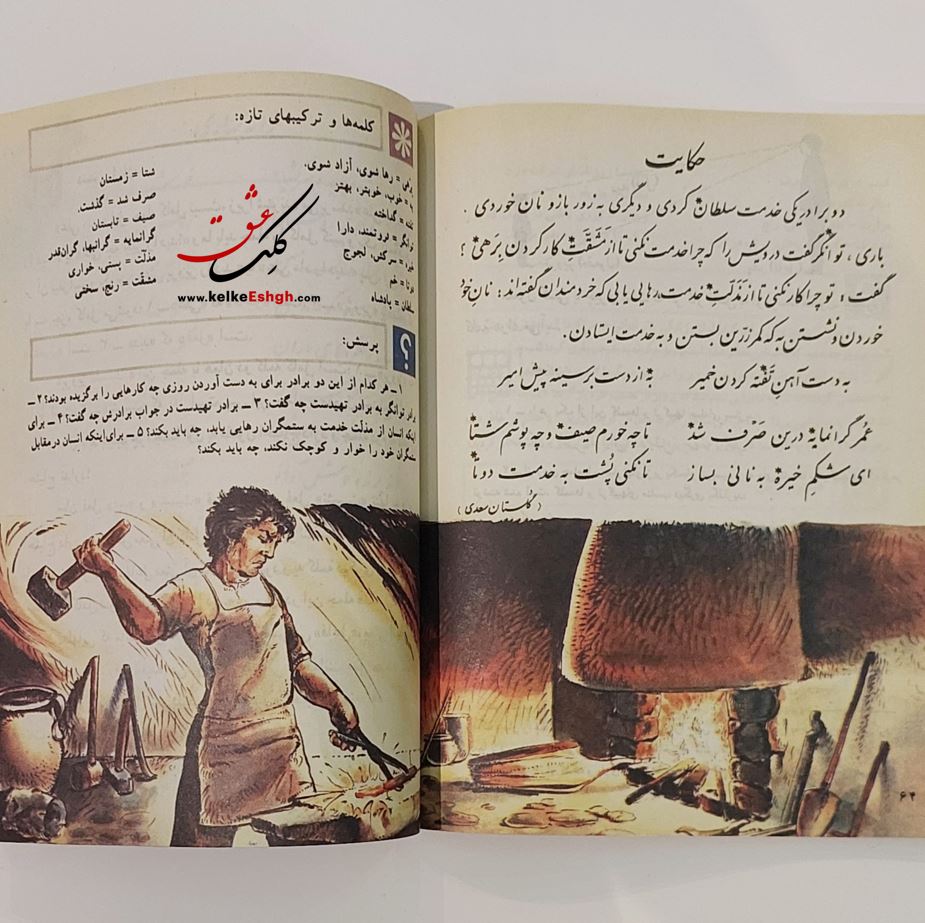 حکایت
دو برادر یکی خدمت سلطان کردی و دیگری به زور بازو نان خوردی .
باری ، توانگر گفت درویش را که چرا خدمت نکنی تا از مشقّت کار کردن برهی ؟
گفت ؛ تو چرا کار نکنی تا از مذلّت خدمت رهایی یابی که خردمندان گفته‌اند : نانِ خود
خوردن و نشستن به که کمر زرّین بستن و به خدمت ایستادن .
به دست آهنِ تَفْته کردن خمیر به از دست بر سینه پیش امیر
عُمر گرانمایه درین صَرْف شد تا چه خورم صیف و چه پوشم شتا
ای شکمِ خیره به نانی بساز تا نکنی پُشت به خدمت دوتا
(گلستان سعدی)
۶۴
کلمه‌ها و ترکیبهای تازه:
رهی = رها شوی، آزاد شوی.
به = خوب، خوبتر، بهتر
تفته = گداخته
توانگر = ثروتمند، دارا
خیره = سرکش، لجوج
دوتا = خم
سلطان = پادشاه
شتا = زمستان
صرف شد = گذشت.
صیف = تابستان
گرانمایه = گرانبها، گران‌قدر
مذلّت = پستی، خواری
مشقّت = رنج، سختی
کلک عشق
www.kelkeEshgh.com
؟
پرسش:
۱ــ هر کدام از این دو برادر برای به دست آوردن روزی چه کارهایی را برگزیده بودند؟ ۲ــ
برادر توانگر به برادر تهیدست چه گفت؟ ۳ــ برادر تهیدست در جواب برادرش چه گفت؟ ۴ــ برای
اینکه انسان از مذلّت خدمت به ستمگران رهایی یابد، چه باید بکند؟ ۵ــ برای اینکه انسان در مقابل
ستمگران خود را خوار و کوچک نکند، چه باید بکند؟